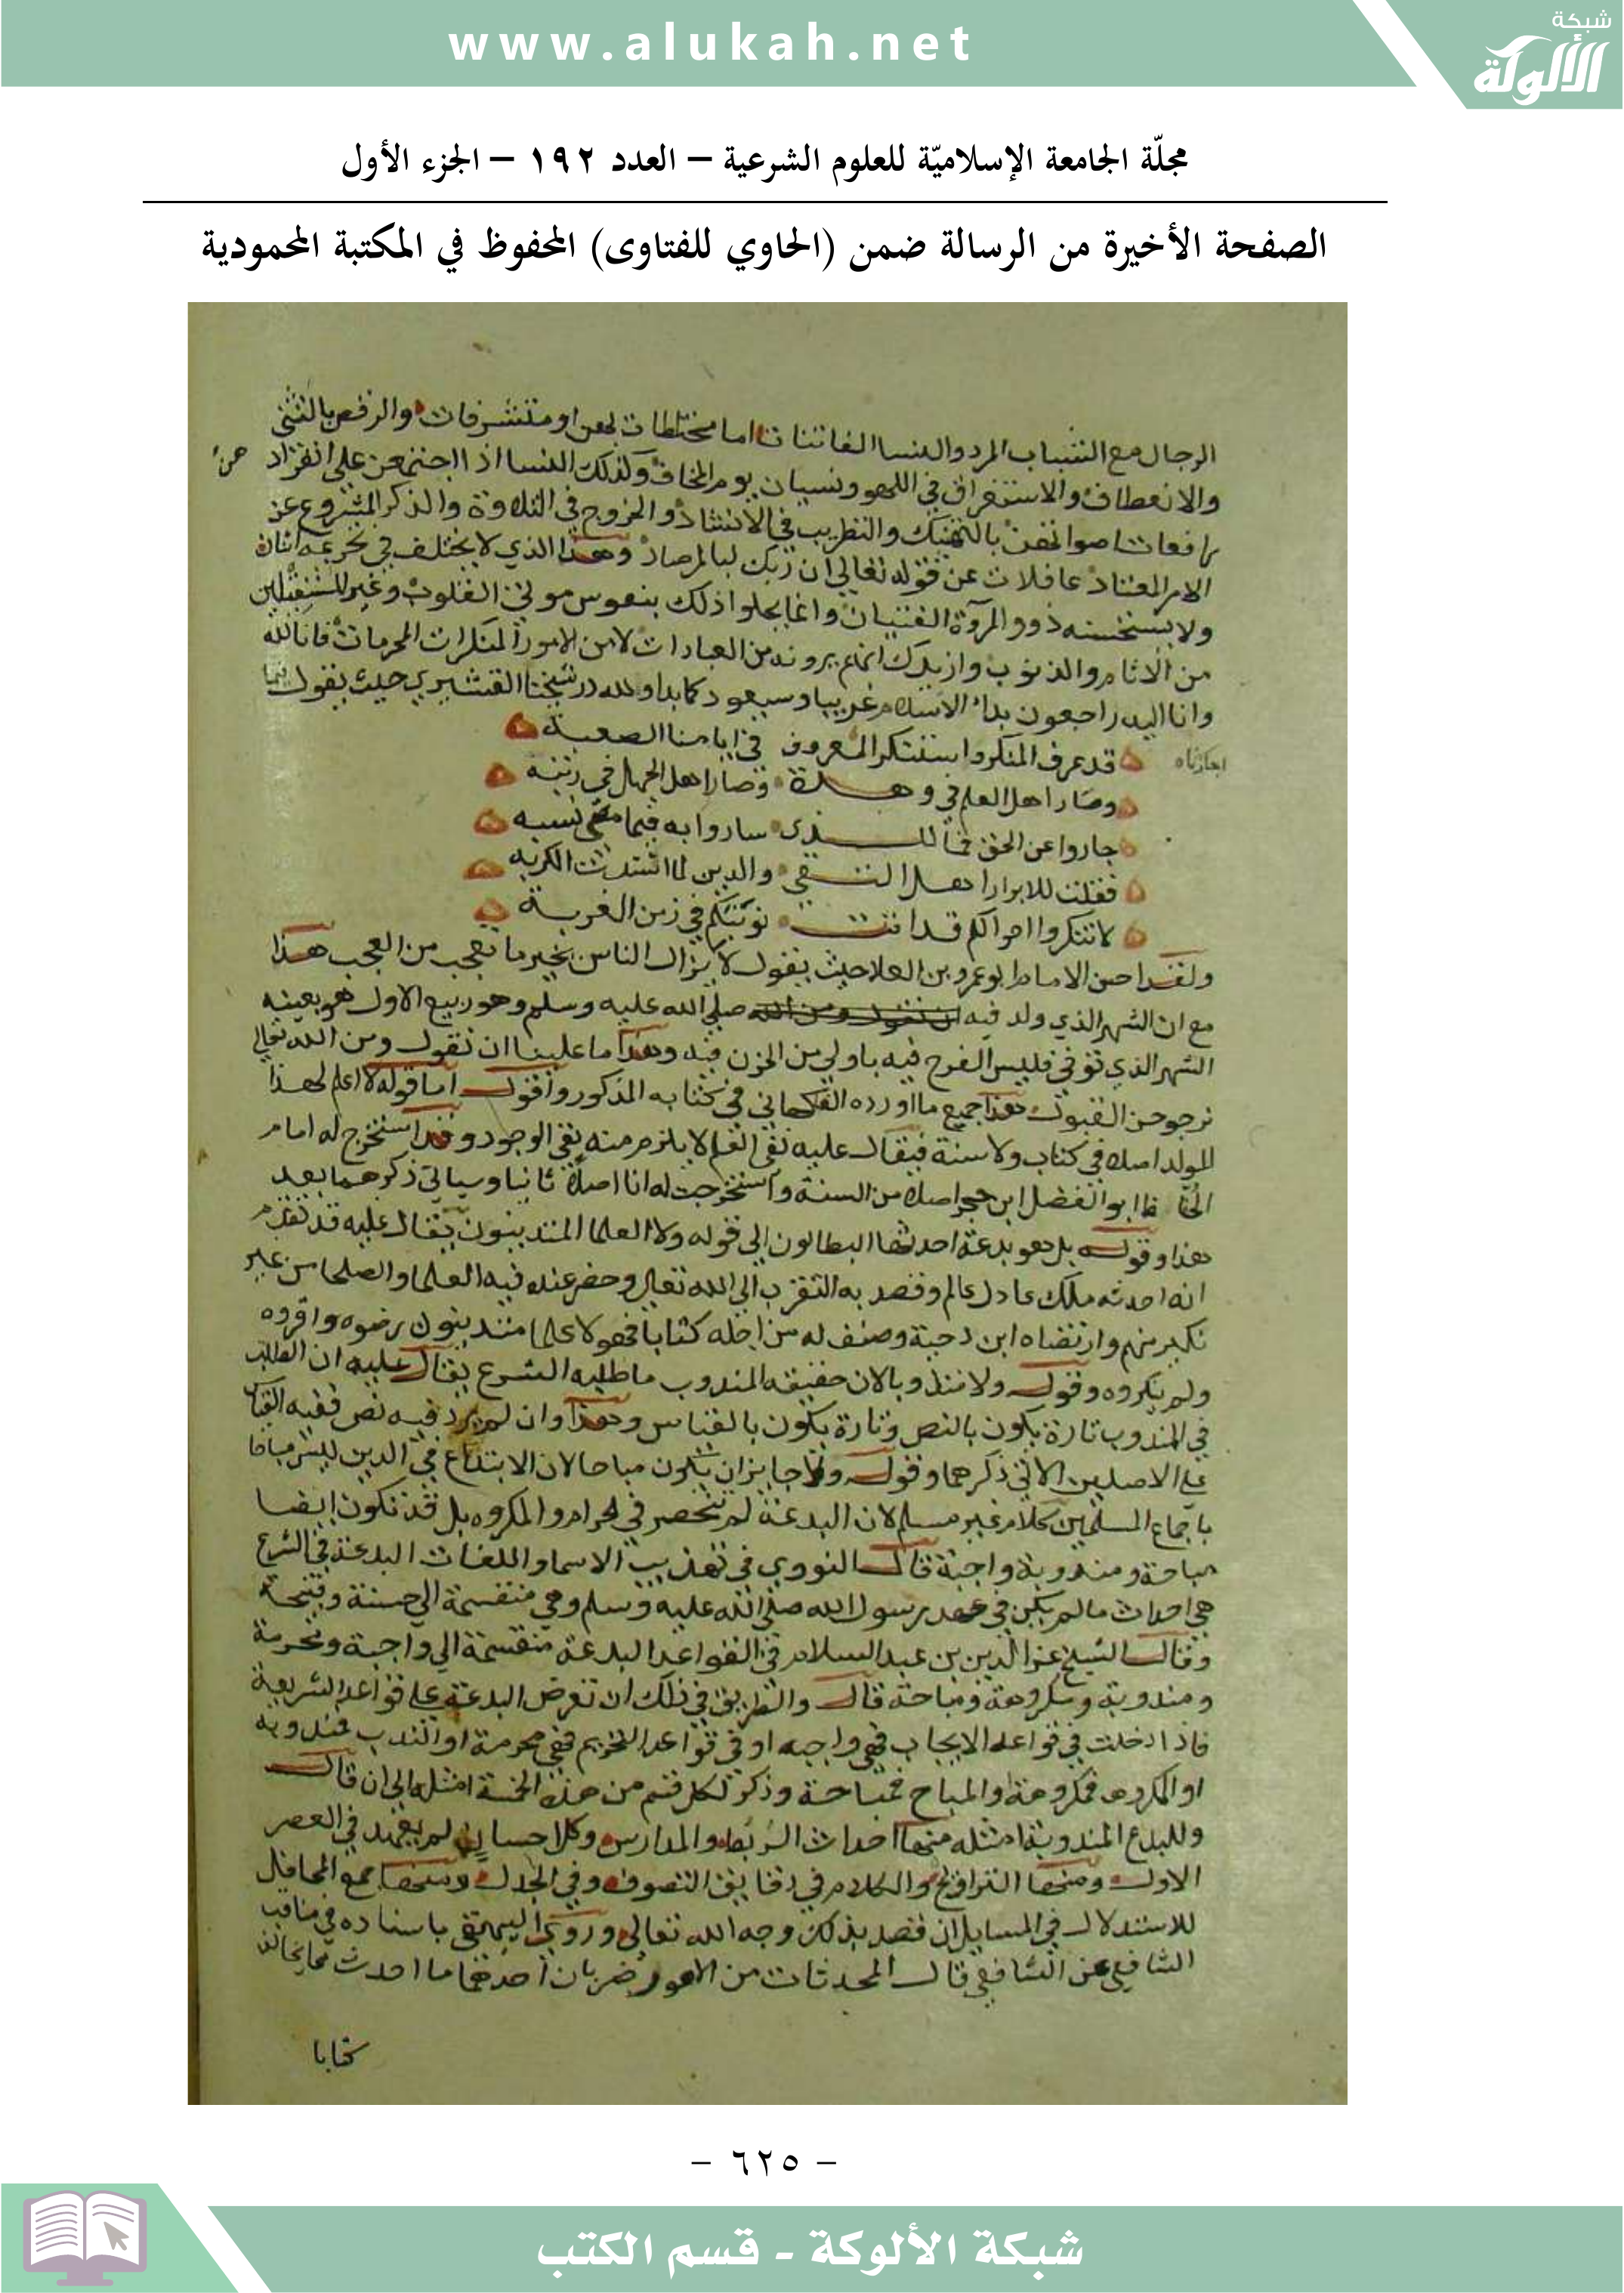 www.alukah.net
شبكة
الألوكة
مجلّة الجامعة الإسلاميّة للعلوم الشرعية – العدد ١٩٢ – الجزء الأول
الصفحة الأخيرة من الرسالة ضمن (الحاوي للفتاوى) المحفوظ في المكتبة المحمودية
الرجال مع الشباب المرد والنسا الفاتنات اما مختلطات بهن او متشرفات والرقص بالتثنى
والانعطاف والاستغراق في اللهو ونسيان يوم المخاف وكذلك النسا اذا اجتمعن على انفراد هن
رافعات اصواتهن بالتهنيك والتطريب في الانشاد والخروج في التلاوة والذكر المشروع عن
الامر المعتاد غافلات عن قوله تعالى ان ربك لبالمرصاد وهذا الذي لا يختلف في تحريمه اثنان
ولا يستحسنه ذوو المروة الفتيان وانما يحلوا ذلك بنفوس موتى القلوب وغير المستقلين
من الاثام والذنوب وازيدك انهم يرونه من العبادات لا من الامور المنكرات المحرمات فانا لله
وانا اليه راجعون بدا الاسلام غريبا وسيعود كما بدا ولله در شيخنا القشيري حيث يقول فيما
اجازناه
قد عرف المنكر واستنكر المعروف في ايامنا الصعبة
وصار اهل العلم في وهدة وصار اهل الجهل في رتبه
جاروا عن الحق فما للذى ساروا به فيما مضى نسبه
فقلت للابرار اهل التقى والدين لما اشتدت الكربه
لا تنكروا احوالكم قد اتت نوبتكم في زمن الغربة
ولقد احسن الامام ابو عمرو بن العلا حيث يقول لا يزال الناس بخير ما تعجب من العجب هذا
مع ان الشهر الذي ولد فيه ان نقول ومن الله صلى الله عليه وسلم وهو ربيع الاول هو بعينه
الشهر الذي توفي فليس الفرح فيه باولى من الحزن فيه وهذا ما علينا ان نقول ومن الله تعالى
نرجو حسن القبول هذا جميع ما اورده الفاكهاني في كتابه المذكور واقول اما قوله لا اعلم لهذا
المولد اصلا في كتاب ولا سنة فيقال عليه نفي العلم لا يلزم منه نفي الوجود وقد استخرج له امام
الحفاظ ابو الفضل ابن حجر اصلا من السنة واستخرجت له انا اصلا ثانيا وسياتي ذكرهما بعد
هذا وقوله بل هو بدعة احدثها البطالون الى قوله ولا العلما المتدينون يقال عليه قد تقدم
انه احدثه ملك عادل عالم وقصد به التقرب الى الله تعالى وحضر عنده فيه العلما والصلحا من غير
نكير منهم وارتضاه ابن دحية وصنف له من اجله كتابا فهولا علما متدينون رضوه واقروه
ولم ينكروه وقوله ولا مندوبا لان حقيقة المندوب ما طلبه الشرع يقال عليه ان الطلب
في المندوب تارة يكون بالنص وتارة يكون بالقياس وهذا وان لم يرد فيه نص ففيه القياس
على الاصلين الاتي ذكرهما وقوله ولا جايز ان يكون مباحا لان الابتداع في الدين ليس مباحا
باجماع المسلمين كلام غير مسلم لان البدعة لم تنحصر في الحرام والمكروه بل قد تكون ايضا
مباحة ومندوبة وواجبة قال النووي في تهذيب الاسما واللغات البدعة في الشرع
هي احداث ما لم يكن في عهد رسول الله صلى الله عليه وسلم وهي منقسمة الى حسنة وقبيحة
وقال الشيخ عز الدين بن عبد السلام في القواعد البدعة منقسمة الى واجبة ومحرمة
ومندوبة ومكروهة ومباحة قال والطريق في ذلك ان تعرض البدعة على قواعد الشريعة
فاذا دخلت في قواعد الايجاب فهي واجبه او في قواعد التحريم فهي محرمة او الندب فمندوبه
او المكروه فمكروهة او المباح فمباحة وذكر لكل قسم من هذه الخمسة امثله الى ان قال
وللبدع المندوبة امثله منها احداث الربط والمدارس وكل احسان لم يعهد في العصر
الاول ومنها التراويح والكلام في دقايق التصوف وفي الجدل ومنها جمع المحافل
للاستدلال في المسايل ان قصد بذلك وجه الله تعالى وروى البيهقى باسناده في مناقب
الشافعي عن الشافعي قال المحدثات من الامور ضربان احدهما ما احدث مما يخالف
كتابا
– ٦٢٥ –
شبكة الألوكة - قسم الكتب